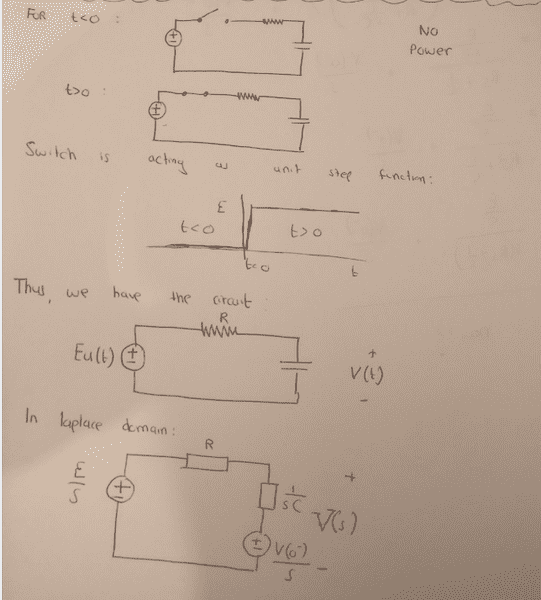 FOR t<0 :
NO
Power
t>0 :
Switch is acting as unit step function:
E
t<0
t>0
t=0
t
Thus, we have the circuit:
R
Eu(t)
+
V(t)
-
In laplace domain:
R
E/S
1/SC
+
V(s)
-
V(0⁻)/S